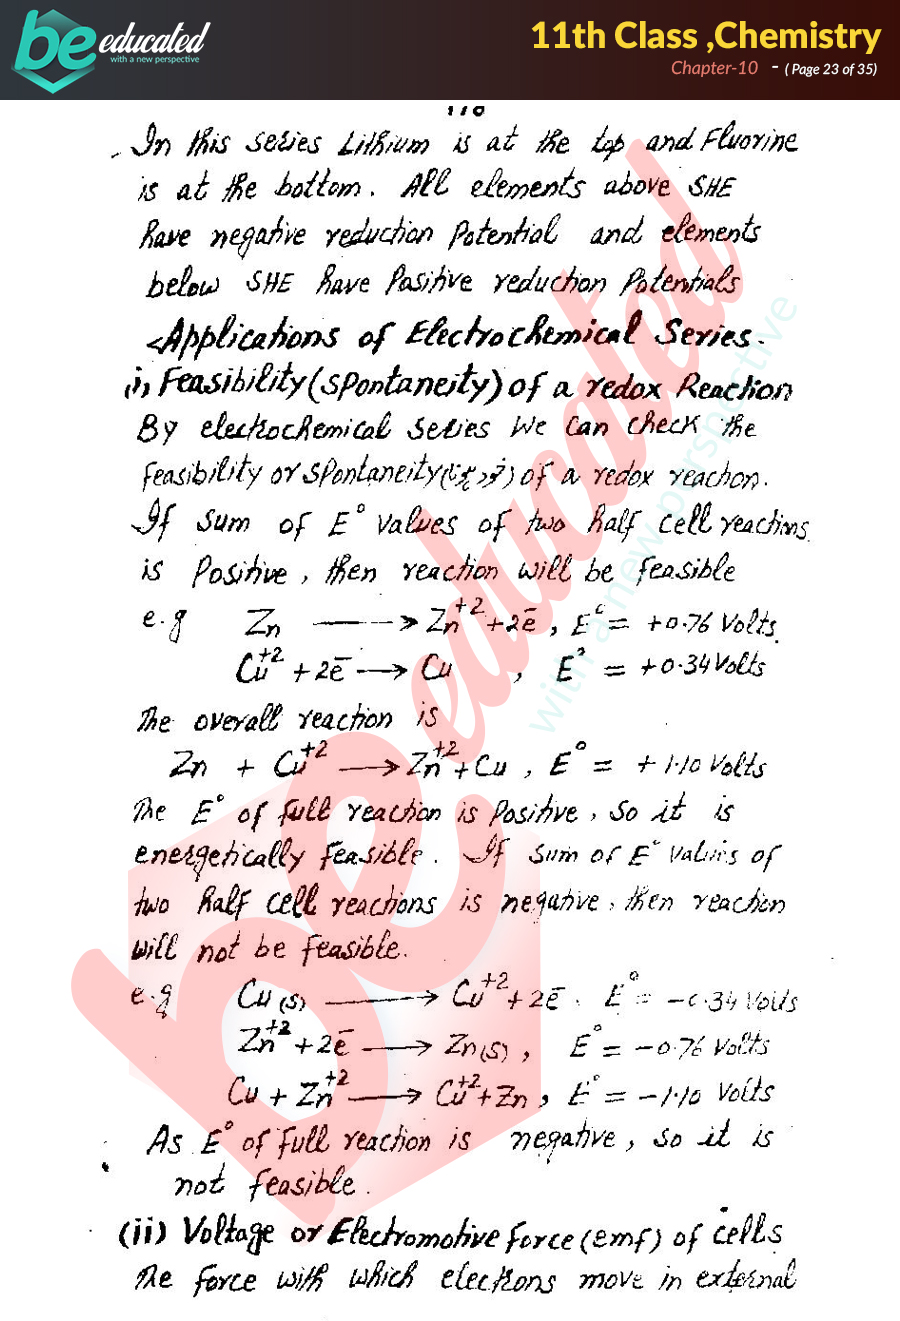 be educated
with a new perspective
11th Class ,Chemistry
Chapter-10 - ( Page 23 of 35)
In this series Lithium is at the top and Fluorine
is at the bottom. All elements above SHE
have negative reduction Potential and elements
below SHE have Positive reduction Potentials
Applications of Electrochemical Series.
(i) Feasibility (Spontaneity) of a redox Reaction
By electrochemical series We Can check the
feasibility or spontaneity() of a redox reaction.
If Sum of E° values of two half cell reactions
is Positive, then reaction will be feasible
e.g Zn ⟶ Zn⁺² + 2ē, E° = +0.76 Volts.
Cu⁺² + 2ē ⟶ Cu , E° = +0.34 Volts
The overall reaction is
Zn + Cu⁺² ⟶ Zn⁺² + Cu , E° = +1.10 Volts
The E° of full reaction is Positive, so it is
energetically feasible. If Sum of E° Values of
two half cell reactions is negative, then reaction
will not be feasible.
e.g Cu(s) ⟶ Cu⁺² + 2ē. E° = -0.34 Volts
Zn⁺² + 2ē ⟶ Zn(s), E° = -0.76 Volts
Cu + Zn⁺² ⟶ Cu⁺² + Zn, E° = -1.10 Volts
As E° of full reaction is negative, so it is
not feasible.
(ii) Voltage or Electromotive force (emf) of cells
The force with which electrons move in external
be educated
with a new perspective